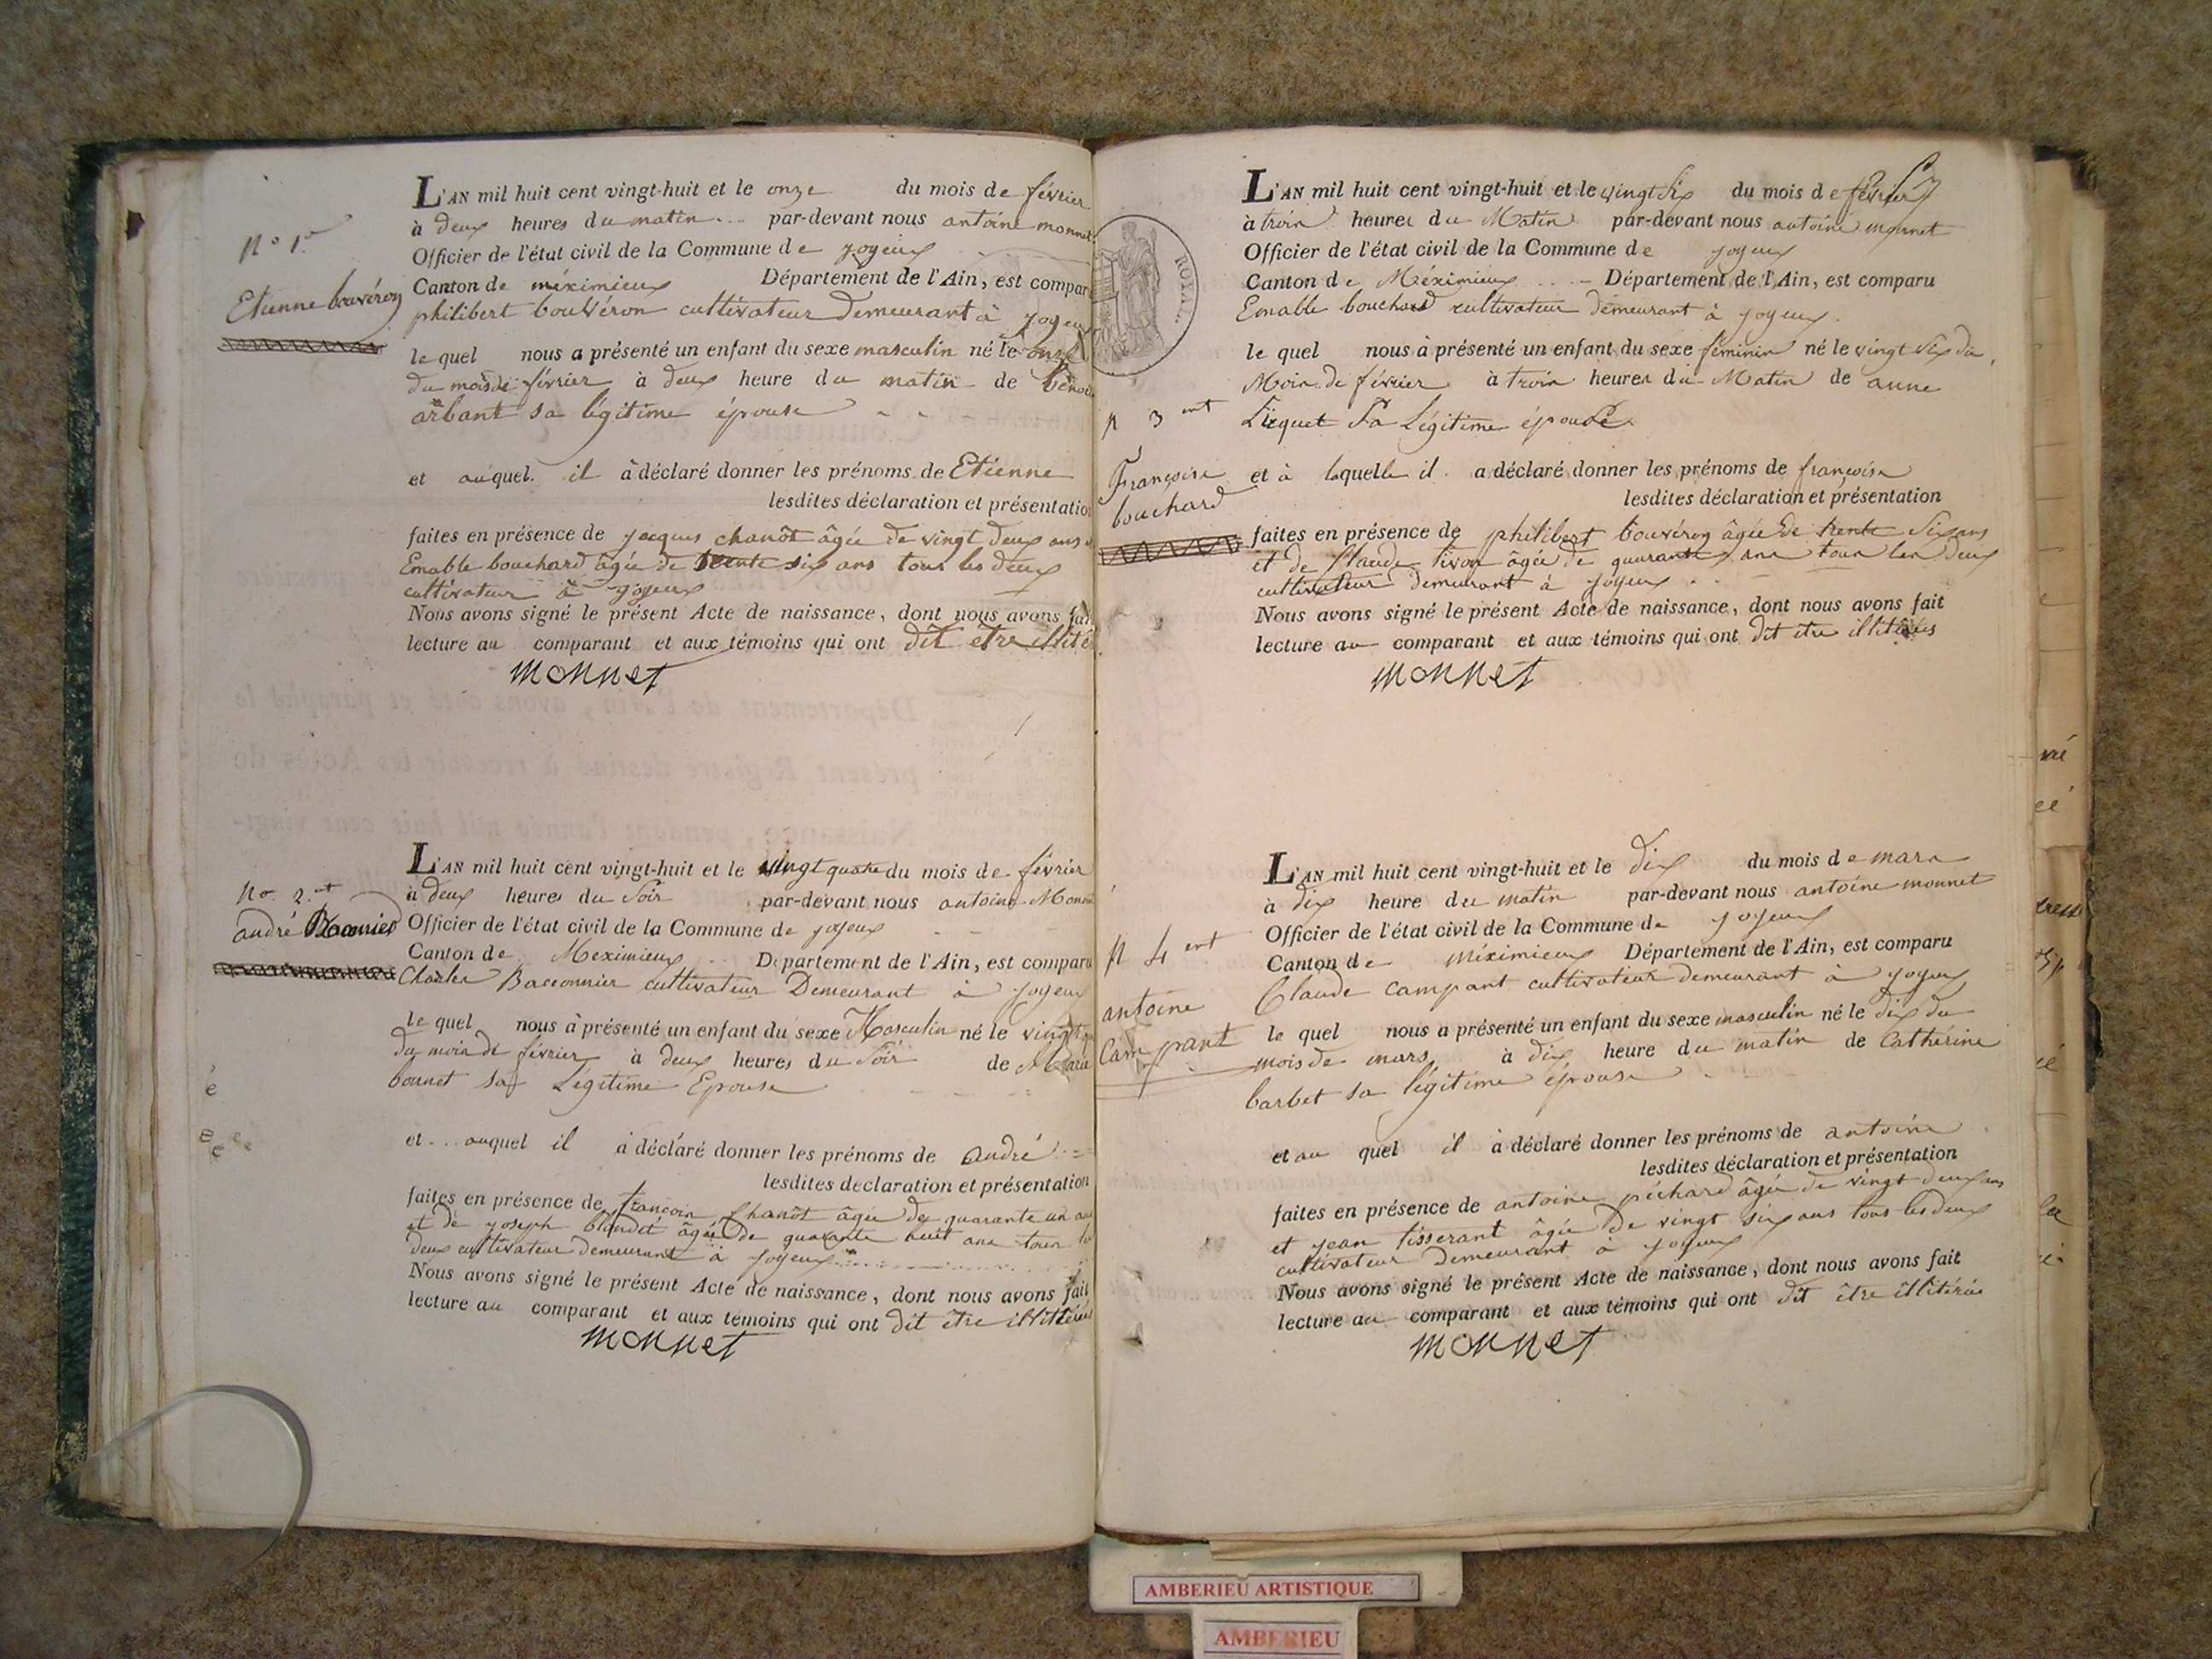 N° 1er
Etienne bouvéron
L'AN mil huit cent vingt-huit et le onze du mois de février
à deux heures du matin par-devant nous antoine monnet
Officier de l'état civil de la Commune de joyeux
Canton de méximieux Département de l'Ain, est compar
philibert bouvéron cultivateur Demeurant à joyeux
le quel nous a présenté un enfant du sexe masculin né le onze
du mois de février à deux heure du matin de
arbant sa légitime épouse
et auquel il à déclaré donner les prénoms de Etienne
lesdites déclaration et présentation
faites en présence de jacques chanôt âgée de vingt deux ans
Emable bouchard âgée de trente six ans tous les deux
cultivateur à joyeux
Nous avons signé le présent Acte de naissance, dont nous avons fait
lecture au comparant et aux témoins qui ont dit etre illité
monnet
No 2ent
andré
L'AN mil huit cent vingt-huit et le vingt quatre du mois de février
à deux heures du soir par-devant nous antoine Monnet
Officier de l'état civil de la Commune de joyeux
Canton de Meximieux Département de l'Ain, est comparu
Charles Bacconnier cultivateur Demeurant à joyeux
le quel nous à présenté un enfant du sexe Masculin né le
du mois de février à deux heures du soir de Marie
bonnet sa Légitime Epouse
et auquel il à déclaré donner les prénoms de andré
lesdites declaration et présentation
faites en présence de françois chanôt âgée de quarante un ans
et de joseph blandet âgée de quarante huit ans tous les
deux cultivateur demeurant à joyeux
Nous avons signé le présent Acte de naissance, dont nous avons fait
lecture au comparant et aux témoins qui ont dit être illittérés
monnet
ROYAL.
n 3ent
Françoise
bouchard
L'AN mil huit cent vingt-huit et le vingt six du mois de février
à trois heures du Matin par-devant nous antoine monnet
Officier de l'état civil de la Commune de joyeux
Canton de Méximieux Département de l'Ain, est comparu
Emable bouchard cultivateur demeurant à joyeux.
le quel nous à présenté un enfant du sexe féminin né le vingt six du
Mois de février à trois heures du Matin de anne
Liequet sa Légitime épouse
et à laquelle il a déclaré donner les prénoms de françoise
lesdites déclaration et présentation
faites en présence de philibert bouvéron âgée de trente six ans
et de Claude livon âgée de quarante ans tous les deux
cultivateur demeurant à joyeux
Nous avons signé le présent Acte de naissance, dont nous avons fait
lecture au comparant et aux témoins qui ont dit être illitérés
monnet
n 4ent
antoine
Campant
L'AN mil huit cent vingt-huit et le dix du mois de mars
à dix heure du matin par-devant nous antoine monnet
Officier de l'état civil de la Commune de joyeux
Canton de méximieux Département de l'Ain, est comparu
Claude campant cultivateur demeurant à joyeux
le quel nous a présenté un enfant du sexe masculin né le dix du
mois de mars à dix heure du matin de Cathérine
barbet sa légitime épouse
et au quel il à déclaré donner les prénoms de antoine
lesdites déclaration et présentation
faites en présence de antoine péchard âgée de vingt deux ans
et jean tisserant âgée de vingt six ans tous les deux
cultivateur demeurant à joyeux
Nous avons signé le présent Acte de naissance, dont nous avons fait
lecture au comparant et aux témoins qui ont dit être illitérés
monnet
AMBERIEU ARTISTIQUE
AMBERIEU